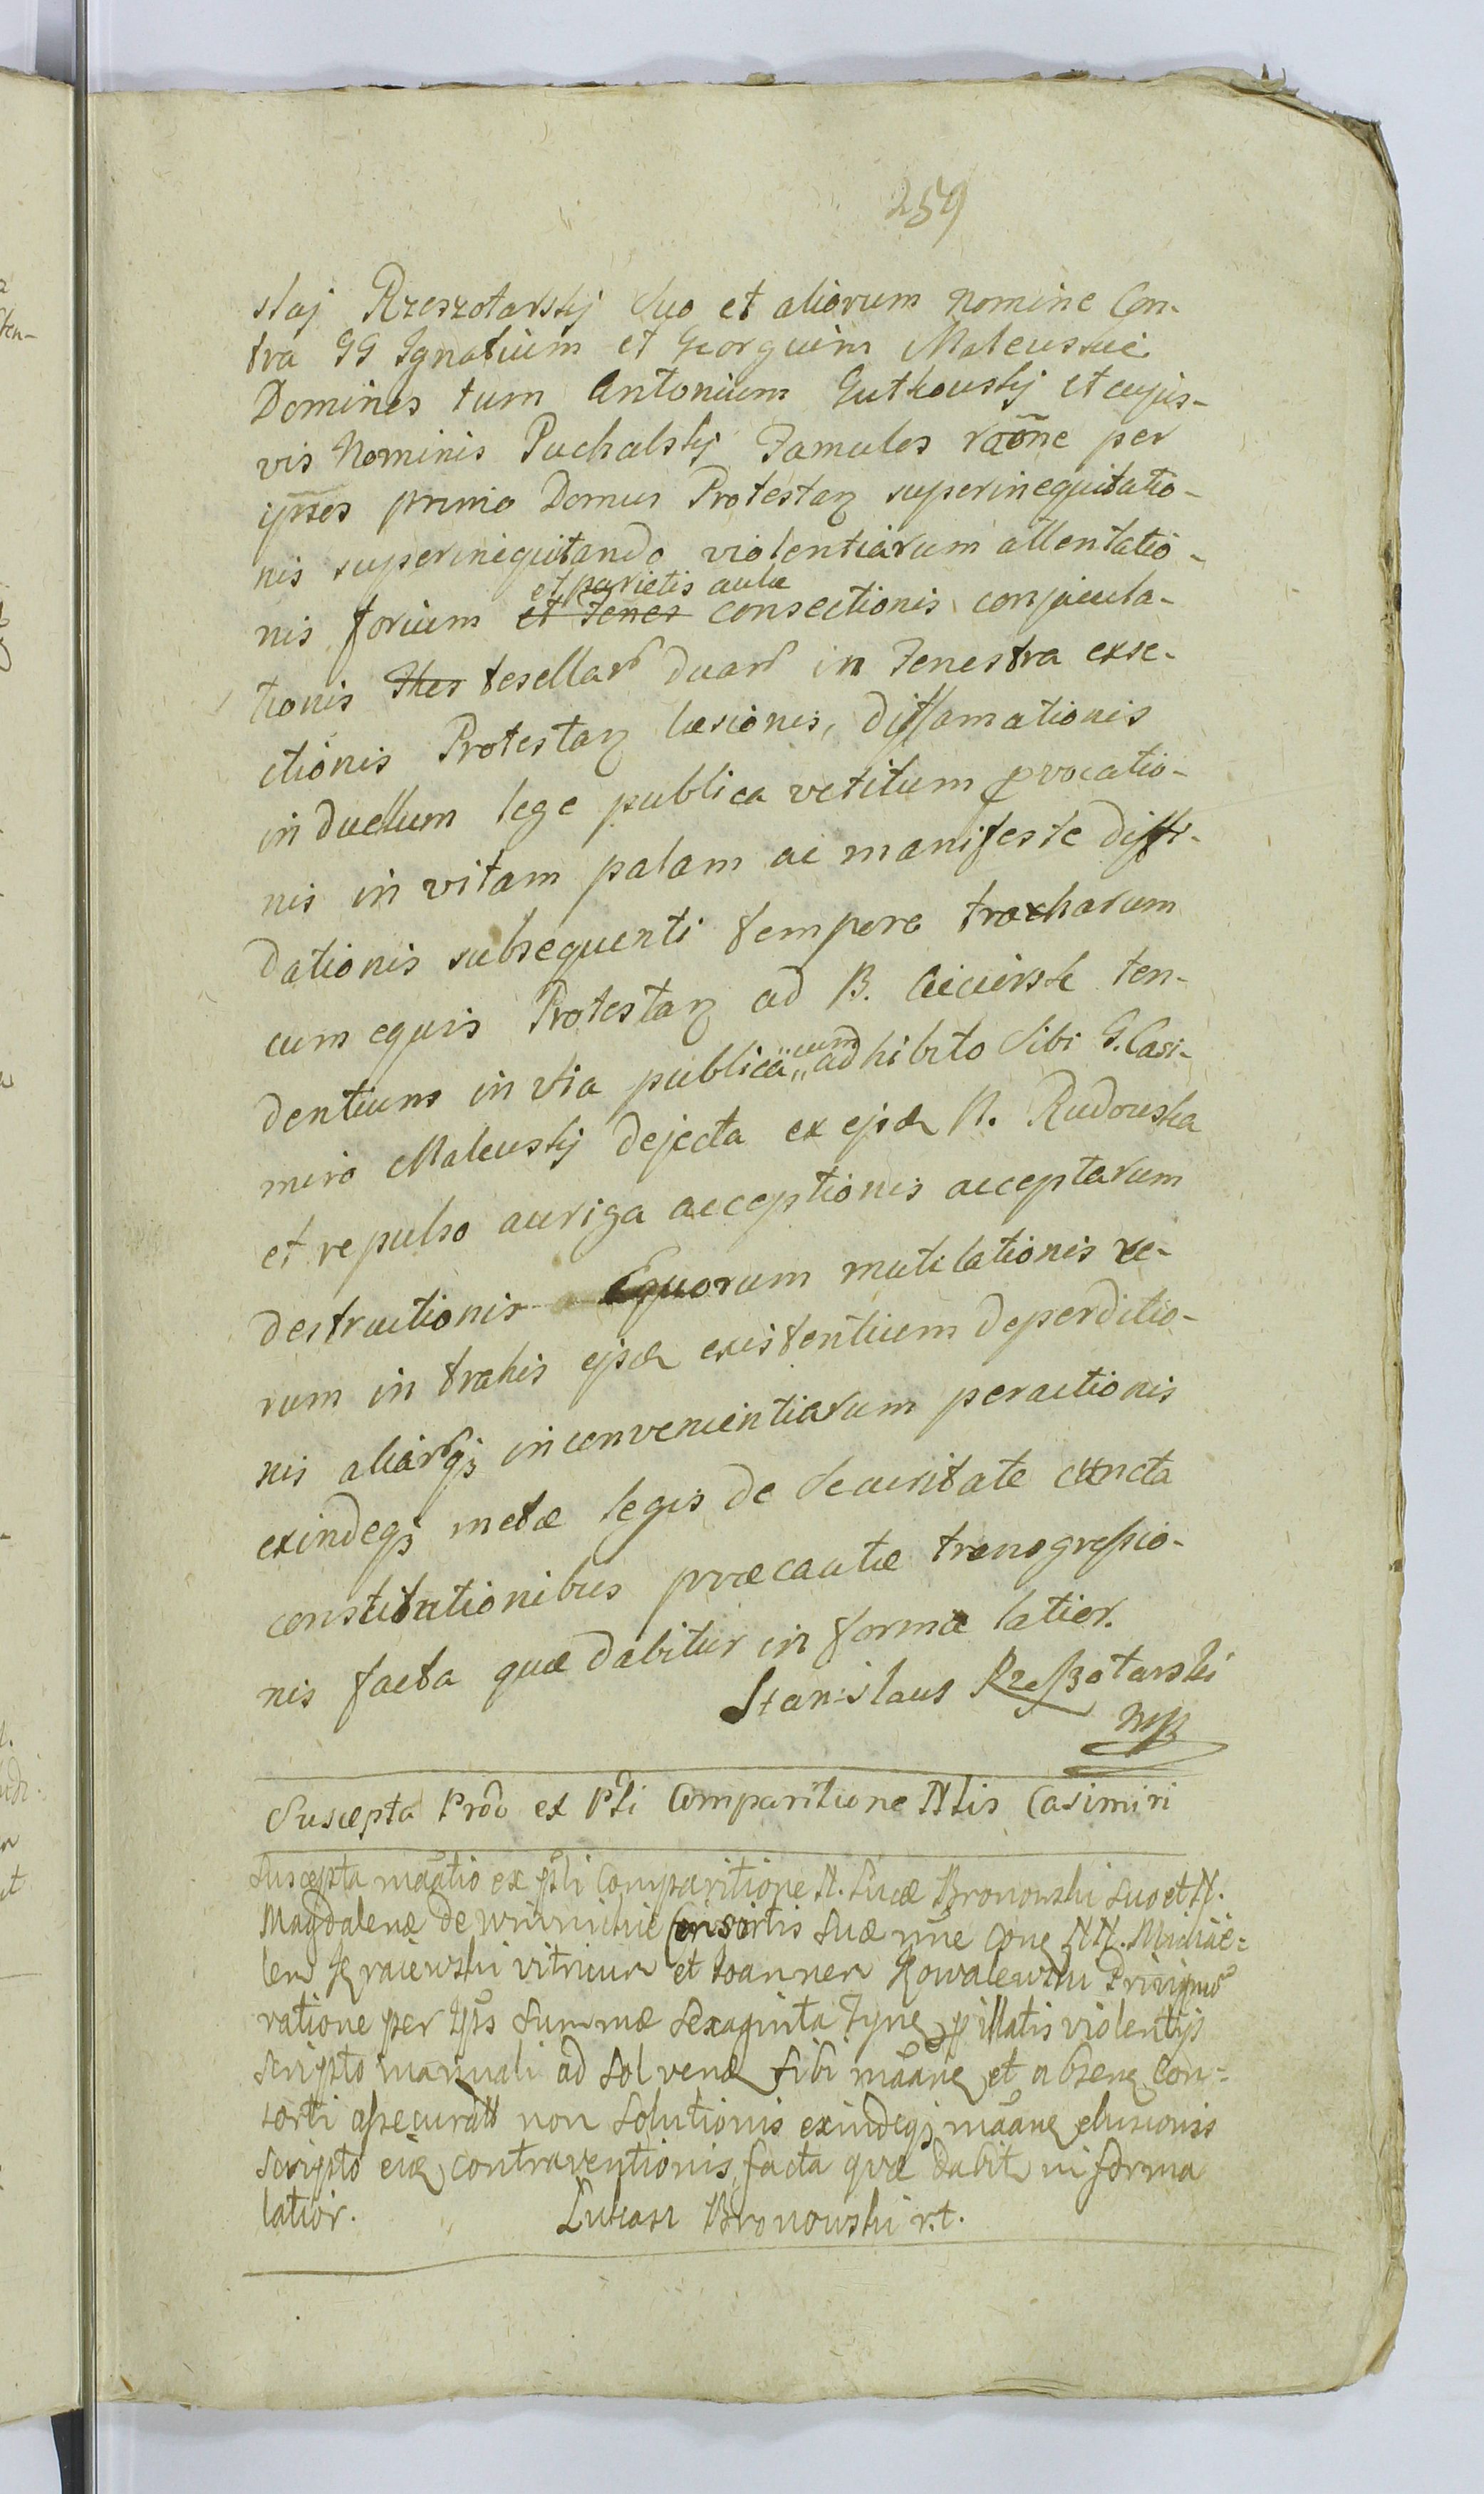 259
slaj Rzeszotarskj Suo et aliorum nomine Con-
tra GG Ignatium et Georguim Maleuskie
Domines tum Antonium Gutkouskj et cujus-
vis Nominis Puchalskj Famulos raõne per
ipsos primo Domus Protestan superinequitatio-
nis superinequitando violentiarum attentatio-
et parietis aulæ
nis forium et Fenes consectionis conjicula-
tionis tesellar duar in Fenestra exse-
ctionis Protestan læsionis, diffamationis
in duellum lege publica vetitum provocatio-
nis in vitam palam ac manifeste diffi-
dationis subsequenti tempore traharum
cum equis Protestan ad B. ten-
cum
dentium in via publica adhibito Sibi G. Casi-
miro Maleuskj dejecta ex ejsd N. Rudouska
et repulso auriga acceptionis acceptarum
destructionis Equorum mutilationis re-
rum in trahis ejsd existentium deperditio-
nis aliarqj inconvenientiarum peractionis
exindeqj metæ legis de Securitate cuncta
constitutionibus præcautæ transgressio-
nis facta quæ dabitur in forma latior.
Stanislaus Rzeszotarski
mp
Suscepta Prõõ ex Pti Comparitione Nlis Casimiri
Suscepta mãatio ex pñti Comparitione N. Lucæ Bronowski suo et N.
Magdalenæ De Consortis Suæ nñe Cone NN. Michäe=
lem Kraiewski vitricum et Joannem Kowalewski Privignũ
ratione per Ipos Summæ sexaginta Tyne p illatis violentijs
scripto manuali ad solvend sibi mãane et absene Con=
sorti assecuratt non solutionis exindeqj mãane elusionis
scripto eiq contraventionis facta quæ dabit in forma
latior. Lukasz Bronowski r.t.